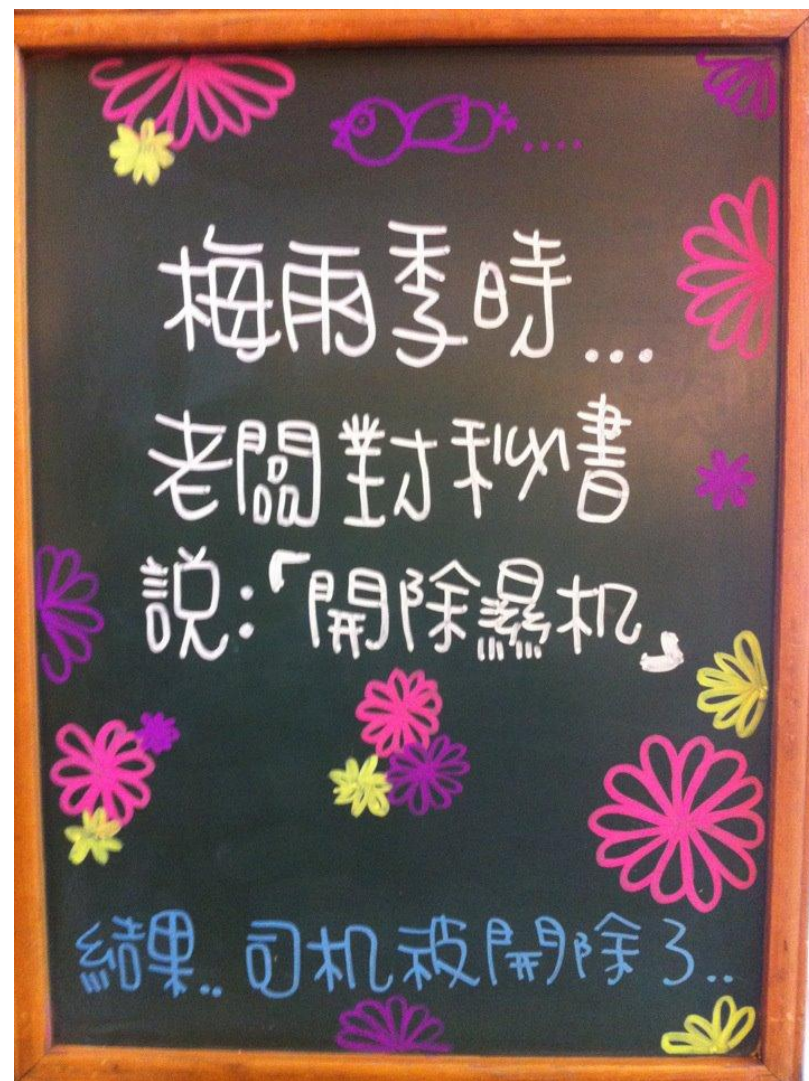 梅雨季時...
老闆對秘書
説:「開除濕机」
結果..司机被開除了..